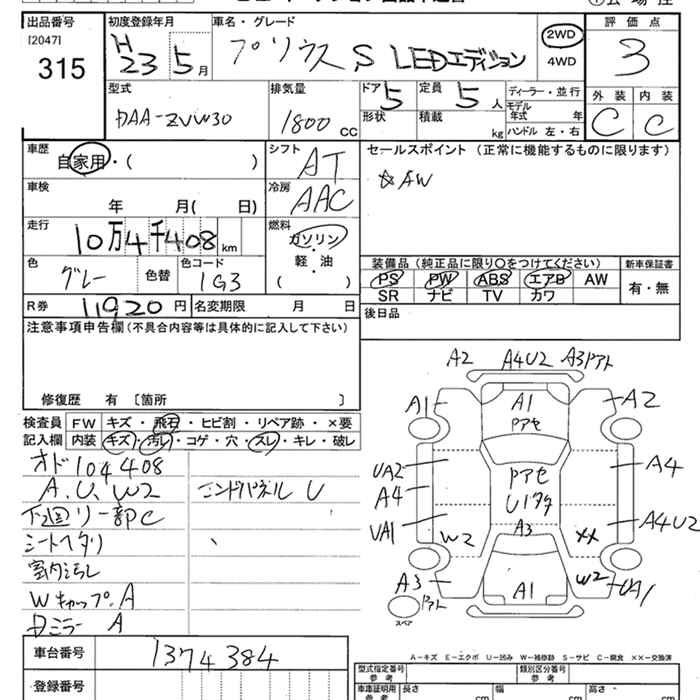 出品番号 初度登録年月 車名・グレード 評価点
[2047] 315 H23 5月 プリウス S LEDエディション 2WD 3
4WD
型式 排気量 ドア 5 定員 5人 ディーラー・並行 外装 内装
DAA-ZVW30 1800CC 形状 積載 kg モデル年式 年 C C
ハンドル 左・右
車歴 自家用・( ) シフト AT セールスポイント (正常に機能するものに限ります)
車検 年 月( 日) 冷房 AAC ☆AW
走行 10万4千408km 燃料 ガソリン
軽・油
( )
色 グレー 色替 色コード 1G3
装備品 (純正品に限り○をつけてください) 新車保証書
PS PW ABS エアB AW 有・無
SR ナビ TV カワ
R券 11920円 名変期限 月 日 後日品
注意事項申告欄 (不具合内容等は具体的に記入して下さい)
修復歴 有 [箇所 ]
検査員記入欄 FW キズ・飛石・ヒビ割・リペア跡・×要
内装 キズ・汚レ・コゲ・穴・スレ・キレ・破レ
オド104408
A.U.W2 エンドパネル U
下廻リ一部C
シートヘタリ
室内汚レ
WキャップA
DミラーA
A2 A4U2 A3
A1 A1 A2
Pアセ
UA2 Pアセ A4
A4 U1
UA1 A3 A4U2
W2 XX
A3 A1 W2 UA1
スペア
A-キズ E-エクボ U-凹み W-補修跡 S-サビ C-腐食 XX-交換済
車台番号 1374384
登録番号
型式指定番号 参考 類別区分番号 参考
車庫証明用 参考 長さ cm 幅 cm 高さ cm